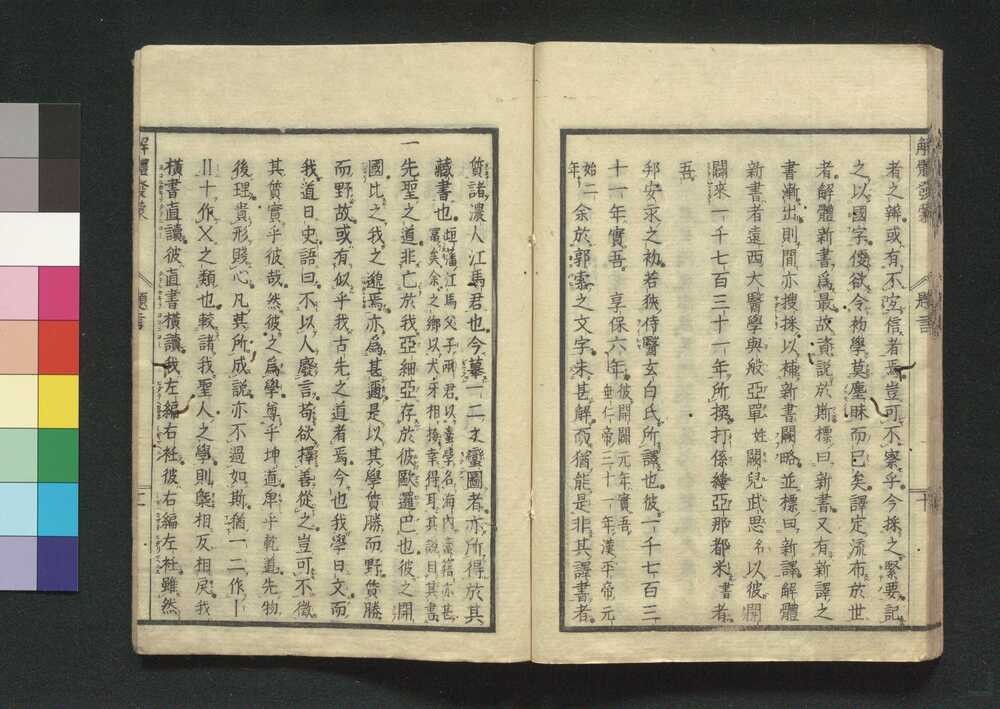 解體發蒙
題言
十
者之辨或有不定信者焉豈可不察乎今採之緊要記
之以國字俊欲令初學莫塵昧而已矣譯定流布於世
者解體新書爲最故資説於斯標曰新書又有新譯之
書漸出則間亦搜採以補新書闕略並標曰新譯解體
新書者遠西大醫學與般亞單姓闕兒武思名以彼開
闢來一千七百三十一年所撰打係縷亞那都米書者
吾
邦安永之初若狹侍醫玄白氏所譯也彼一千七百三
十一年實吾享保六年彼開闢元年實吾垂仁帝三十一年漢平帝元
始二年余於郭索之文字未甚解而猶能是非其譯書者
質諸濃人江馬君也今摹一二之蠻圖者亦所得於其
藏書也垣藩江馬父子兩君以蠻學名海内蠻籍亦甚富矣余之鄉以犬牙相接幸得耳其説目其書
一先聖之道非亡於我亞細亞存於彼歐邏巴也彼之開
國比之我之邈焉亦爲甚邇是以其學質勝而野質勝
而野故或有似乎我古先之道者焉今也我學日文而
我道日史語曰不以人廢言苟欲擇善從之豈可不徵
其質實乎彼哉然彼之爲學尊乎坤道卑乎乾道先物
後理貴形賤心凡其所成説亦不過如斯猶一二作丨
〢十作乂之類也較諸我聖人之學則槩相反相戾我
橫書直讀彼直書橫讀我左編右衽彼右編左衽雖然
解體發蒙
題言
十一